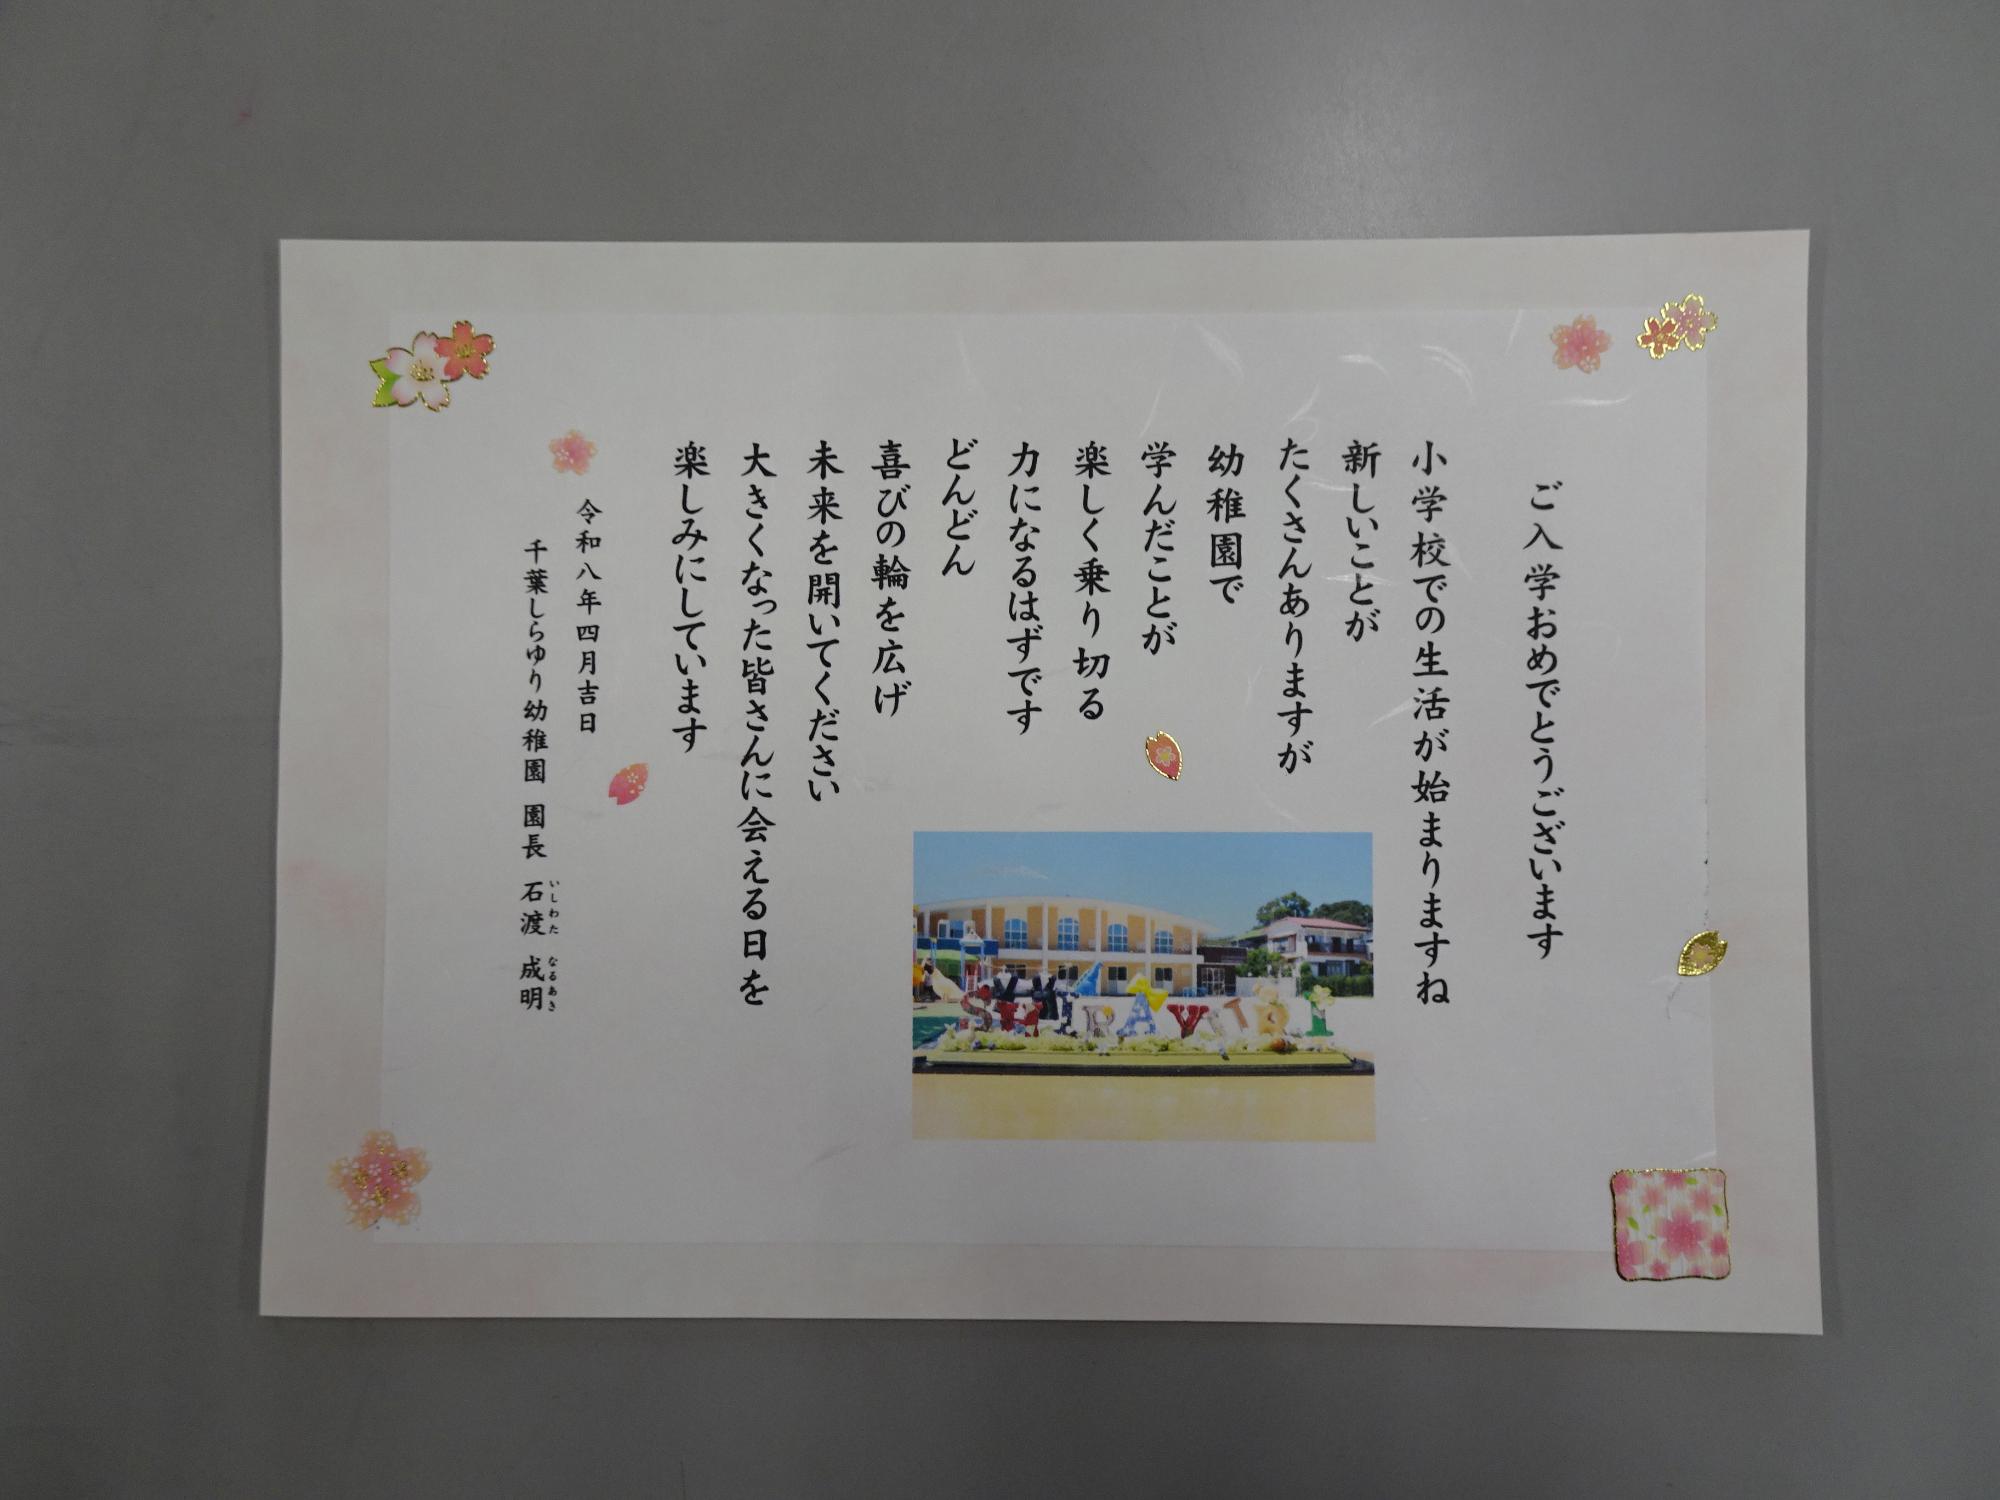 ご入学おめでとうございます
小学校での生活が始まりますね
新しいことが
たくさんありますが
幼稚園で
学んだことが
楽しく乗り切る
力になるはずです
どんどん
喜びの輪を広げ
未来を開いてください
大きくなった皆さんに会える日を
楽しみにしています
令和八年四月吉日
千葉しらゆり幼稚園 園長 石渡 成明
いしわた なるあき
SHIRAYURI